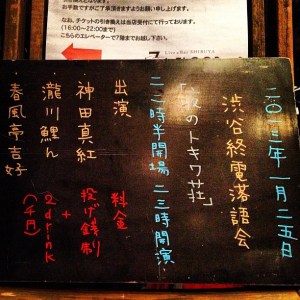 お手数ですがご了承頂きますようお願い申し上げます。
なお、チケットの引き換えは当店受付にて行っております。
こちらのエレベーターで7階までお越し下さい。
二〇一三年一月二五日
渋谷終電落語会
のトキワ荘」
二二時半開場 二三時開演
出演
神田真紅
瀧川鯉ん
春風亭吉好
料金
投げ銭制
+
2drink
(千円)